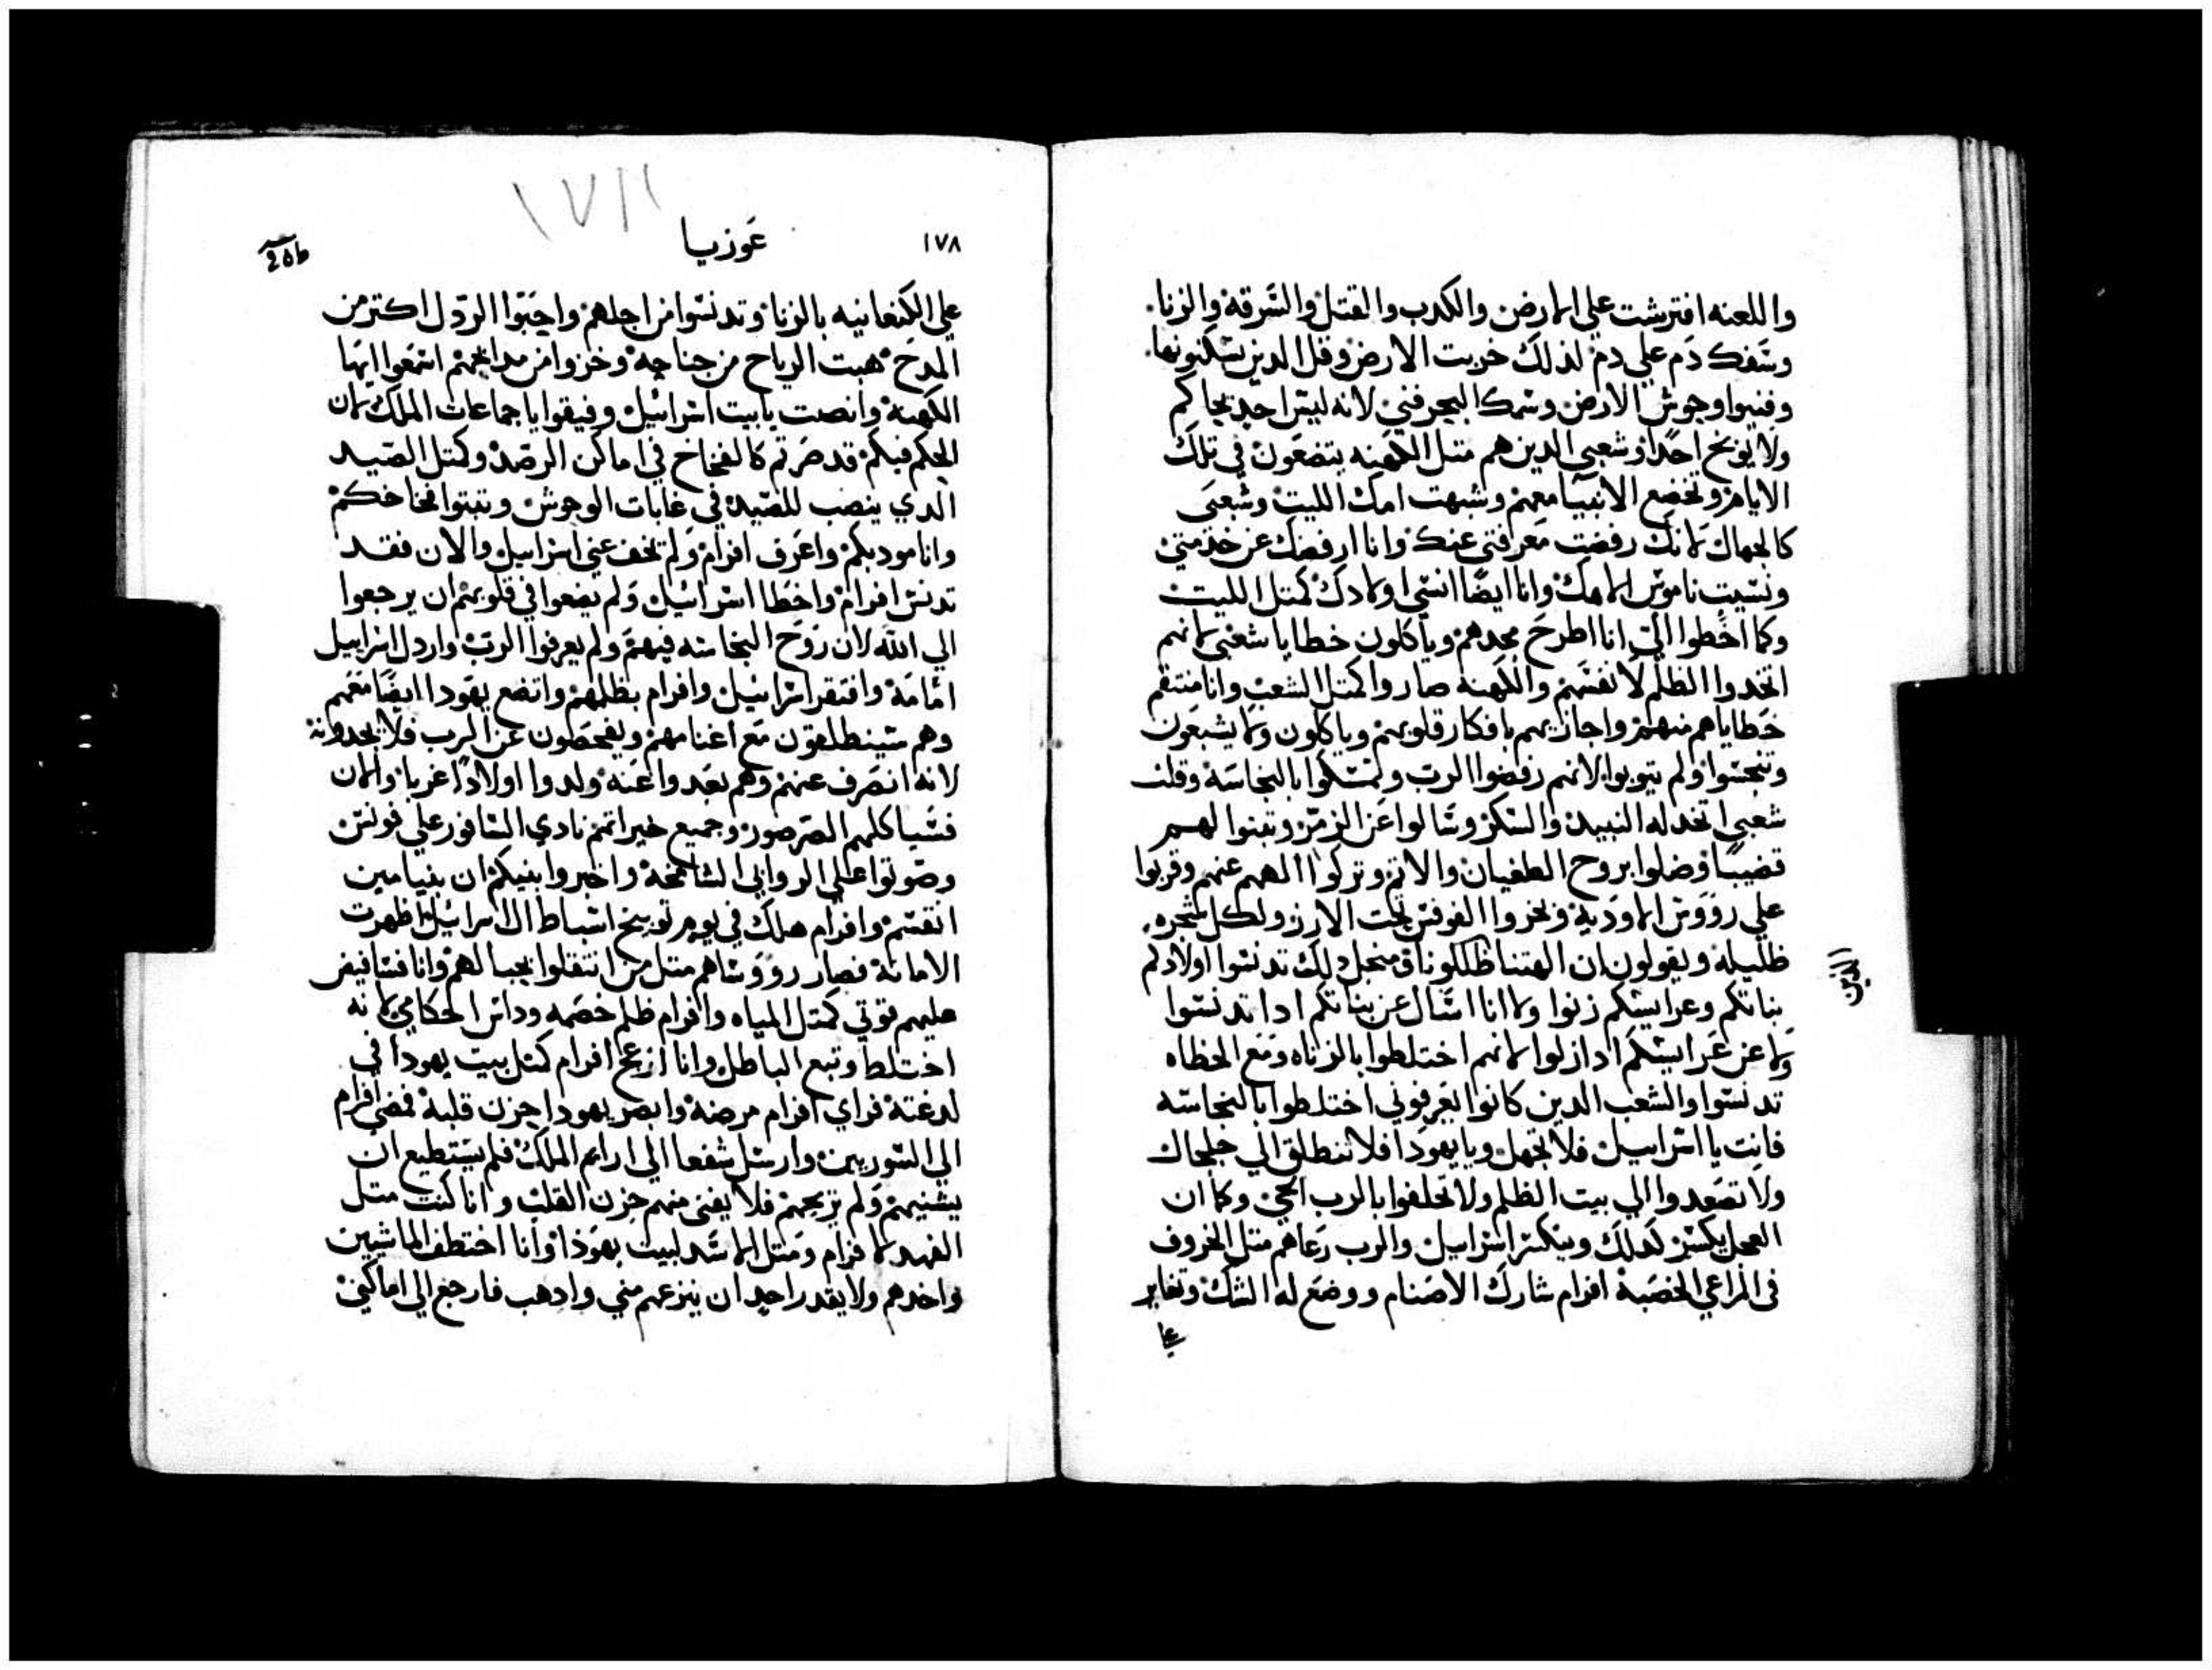 واللعنه افترشت علي الارض والكدب والقتل والسرقة والزنا.
وسفك دم علي دم لذلك خربت الارض وقل الدين يسكنونها.
وفنيوا وحوش الارض وسمك البحر فني لانه ليس احد يحاكم
ولا يوبخ احدا وشعبي الدين هم متل الكهنه يتضعون في تلك
الايام وتخضع الانبيا معهم وشبهت امك الليت وشعبي
كالجهال لانك رفضت معرفتي عنك وانا ارفضك عن خدمتي
ونسيت ناموس الاهك وانا ايضا انسي اولادك كمتل الليت
وكما اخطوا الي انا اطرح مجدهم وياكلون خطايا شعبي لانهم
اتخدوا الظلم لانفسهم والكهنه صاروا كمتل الشعب وانا منتقم
خطاياهم منهم واجازيهم بافكار قلوبهم وياكلون ولا يشبعون
وتنجسوا ولم يتوبوا لانهم رفضوا الرب وتمسكوا بالنجاسة وقلت
شعبي اتخد له النبيد والسكر وسالوا عن الرمز وتبنوا لهم
قضيبا وضلوا بروح الطغيان والاتم وتركوا الههم عنهم وقربوا
علي رووس الاودية وبخروا الفوقس تحت الارز ولكل شجره
ظليله ويقولون ان الهتنا ظللونا من اجل دلك تدنسوا اولادكم
الدين
بناتكم وعرايسكم زنوا ولا انا اسال عن بناتكم ادا تدنسوا
ولا عن عرايسكم ادا زلوا لانهم اختلطوا بالزناه ومع الخطاه
تدنسوا والشعب الدين كانوا يعرفوني اختلطوا بالنجاسه
فانت يا اسراييل فلا تجهل ويا يهودا فلا تنطلق الي جلجال
ولا تصعدوا الي بيت الظلم ولا تحلفوا بالرب الحي وكما ان
العجل يكسر كدلك وينكسر اسراييل والرب رعاهم متل الخروف
في المراعي الخصبة افرام شارك الاصنام ووضع له الشك وتغاير
علي
١٧٨
عوزيا
علي الكنعانيه بالزنا وتدنسوا من اجلهم واحبوا الردل اكتر من
المدح هبت الرياح من جناحه وخزوا من مدابحهم اسمعوا ايها
الكهنة وانصت يا بيت اسرائيل وفيقوا يا جماعات الملك لان
الحكم فيكم قد صرتم كالفخاخ في اماكن الرصد وكمتل الصيد
الدي ينصب للصيد في غابات الوحوش وتبتوا فخاخكم
وانا مودبكم واعرف افرام ولم تخف عني اسراييل والان فقد
تدنس افرام واخطا اسرائيل ولم يضعوا في قلوبهم ان يرجعوا
الي الله لان روح النجاسه فيهم ولم يعرفوا الرب واردل اسراييل
امامه وافتقر اسراييل وافرام بظلمهم واتضع يهودا ايضا معهم
وهم سينطلقون مع اغنامهم ويفحصون عن الرب فلا يجدونه
لانه انصرف عنهم وهم بعدوا عنه ولدوا اولادا غربا والان
فسياكلهم الصرصور وجميع خيراتهم نادي السافور علي
وصوتوا علي الروابي الشامخة واخبروا بنيكم ان بنيامين
انقسم وافرام هلك في يوم توبيخ اسباط ال اسرائيل ظهرت
الامانة فصار رووساهم متل من انتقلوا بجبالهم وانا فسافيض
عليهم قوتي كمتل المياه وافرام ظلم خصمه وداس احكامي لانه
اختلط وتبع الباطل وانا ازعج افرام كمتل بيت يهودا في
لدغته فراي افرام مرضه وابصر يهودا حزن قلبه فمضي افرام
الي السوريين وارسل شفعا الي ارام الملك فلم يستطيع ان
يشفيهم ولم يريحهم فلا يفني منهم حزن القلب وانا كنت متل
الفهد لافرام ومتل الاسد لبيت يهودا وانا اختطف الماشيين
واخدهم ولا يقدر احد ان ينزعهم مني وادهب فارجع الي اماكني